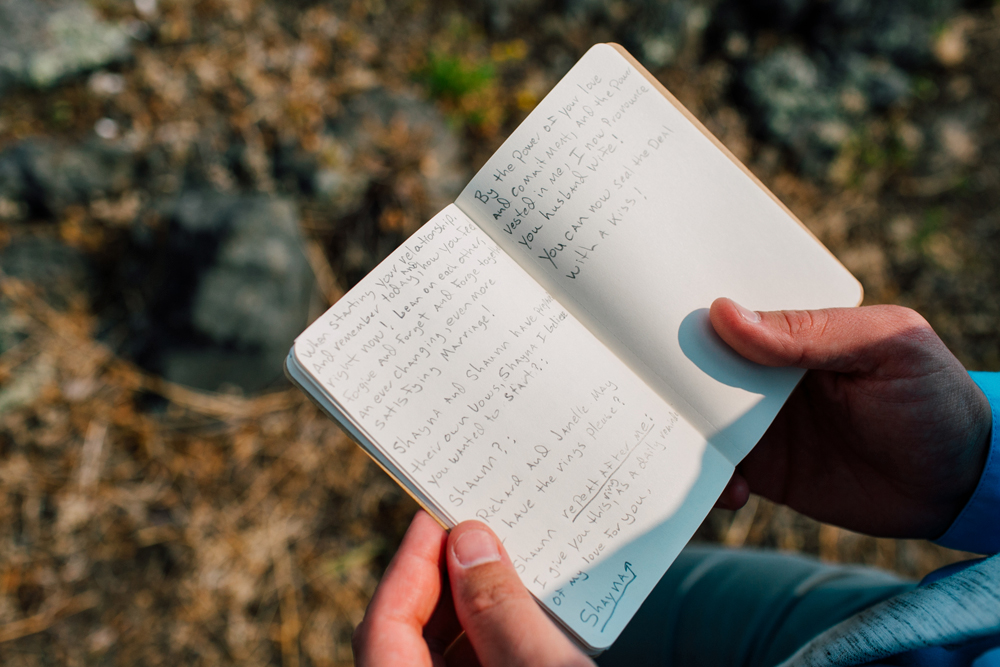 when starting your relationship!
And remember today, And how you feel
right now! Lean on each other,
Forgive And Forget And Forge
An ever changing, even more
satisfying Marriage!
Shayna And Shaunn have
their own vows, Shayna I believe
you wanted to start?:
Shaunn?:
Richard And Janelle May
I have the rings please?
Shaunn repeat After me:
I give you this ring, as A daily
of my love for you.
Shayna↑
By the Power of your love
And commitMent, And the Power
vested in me, I now Pronounce
you husband Wife!
You can now seal the Deal
with A Kiss!